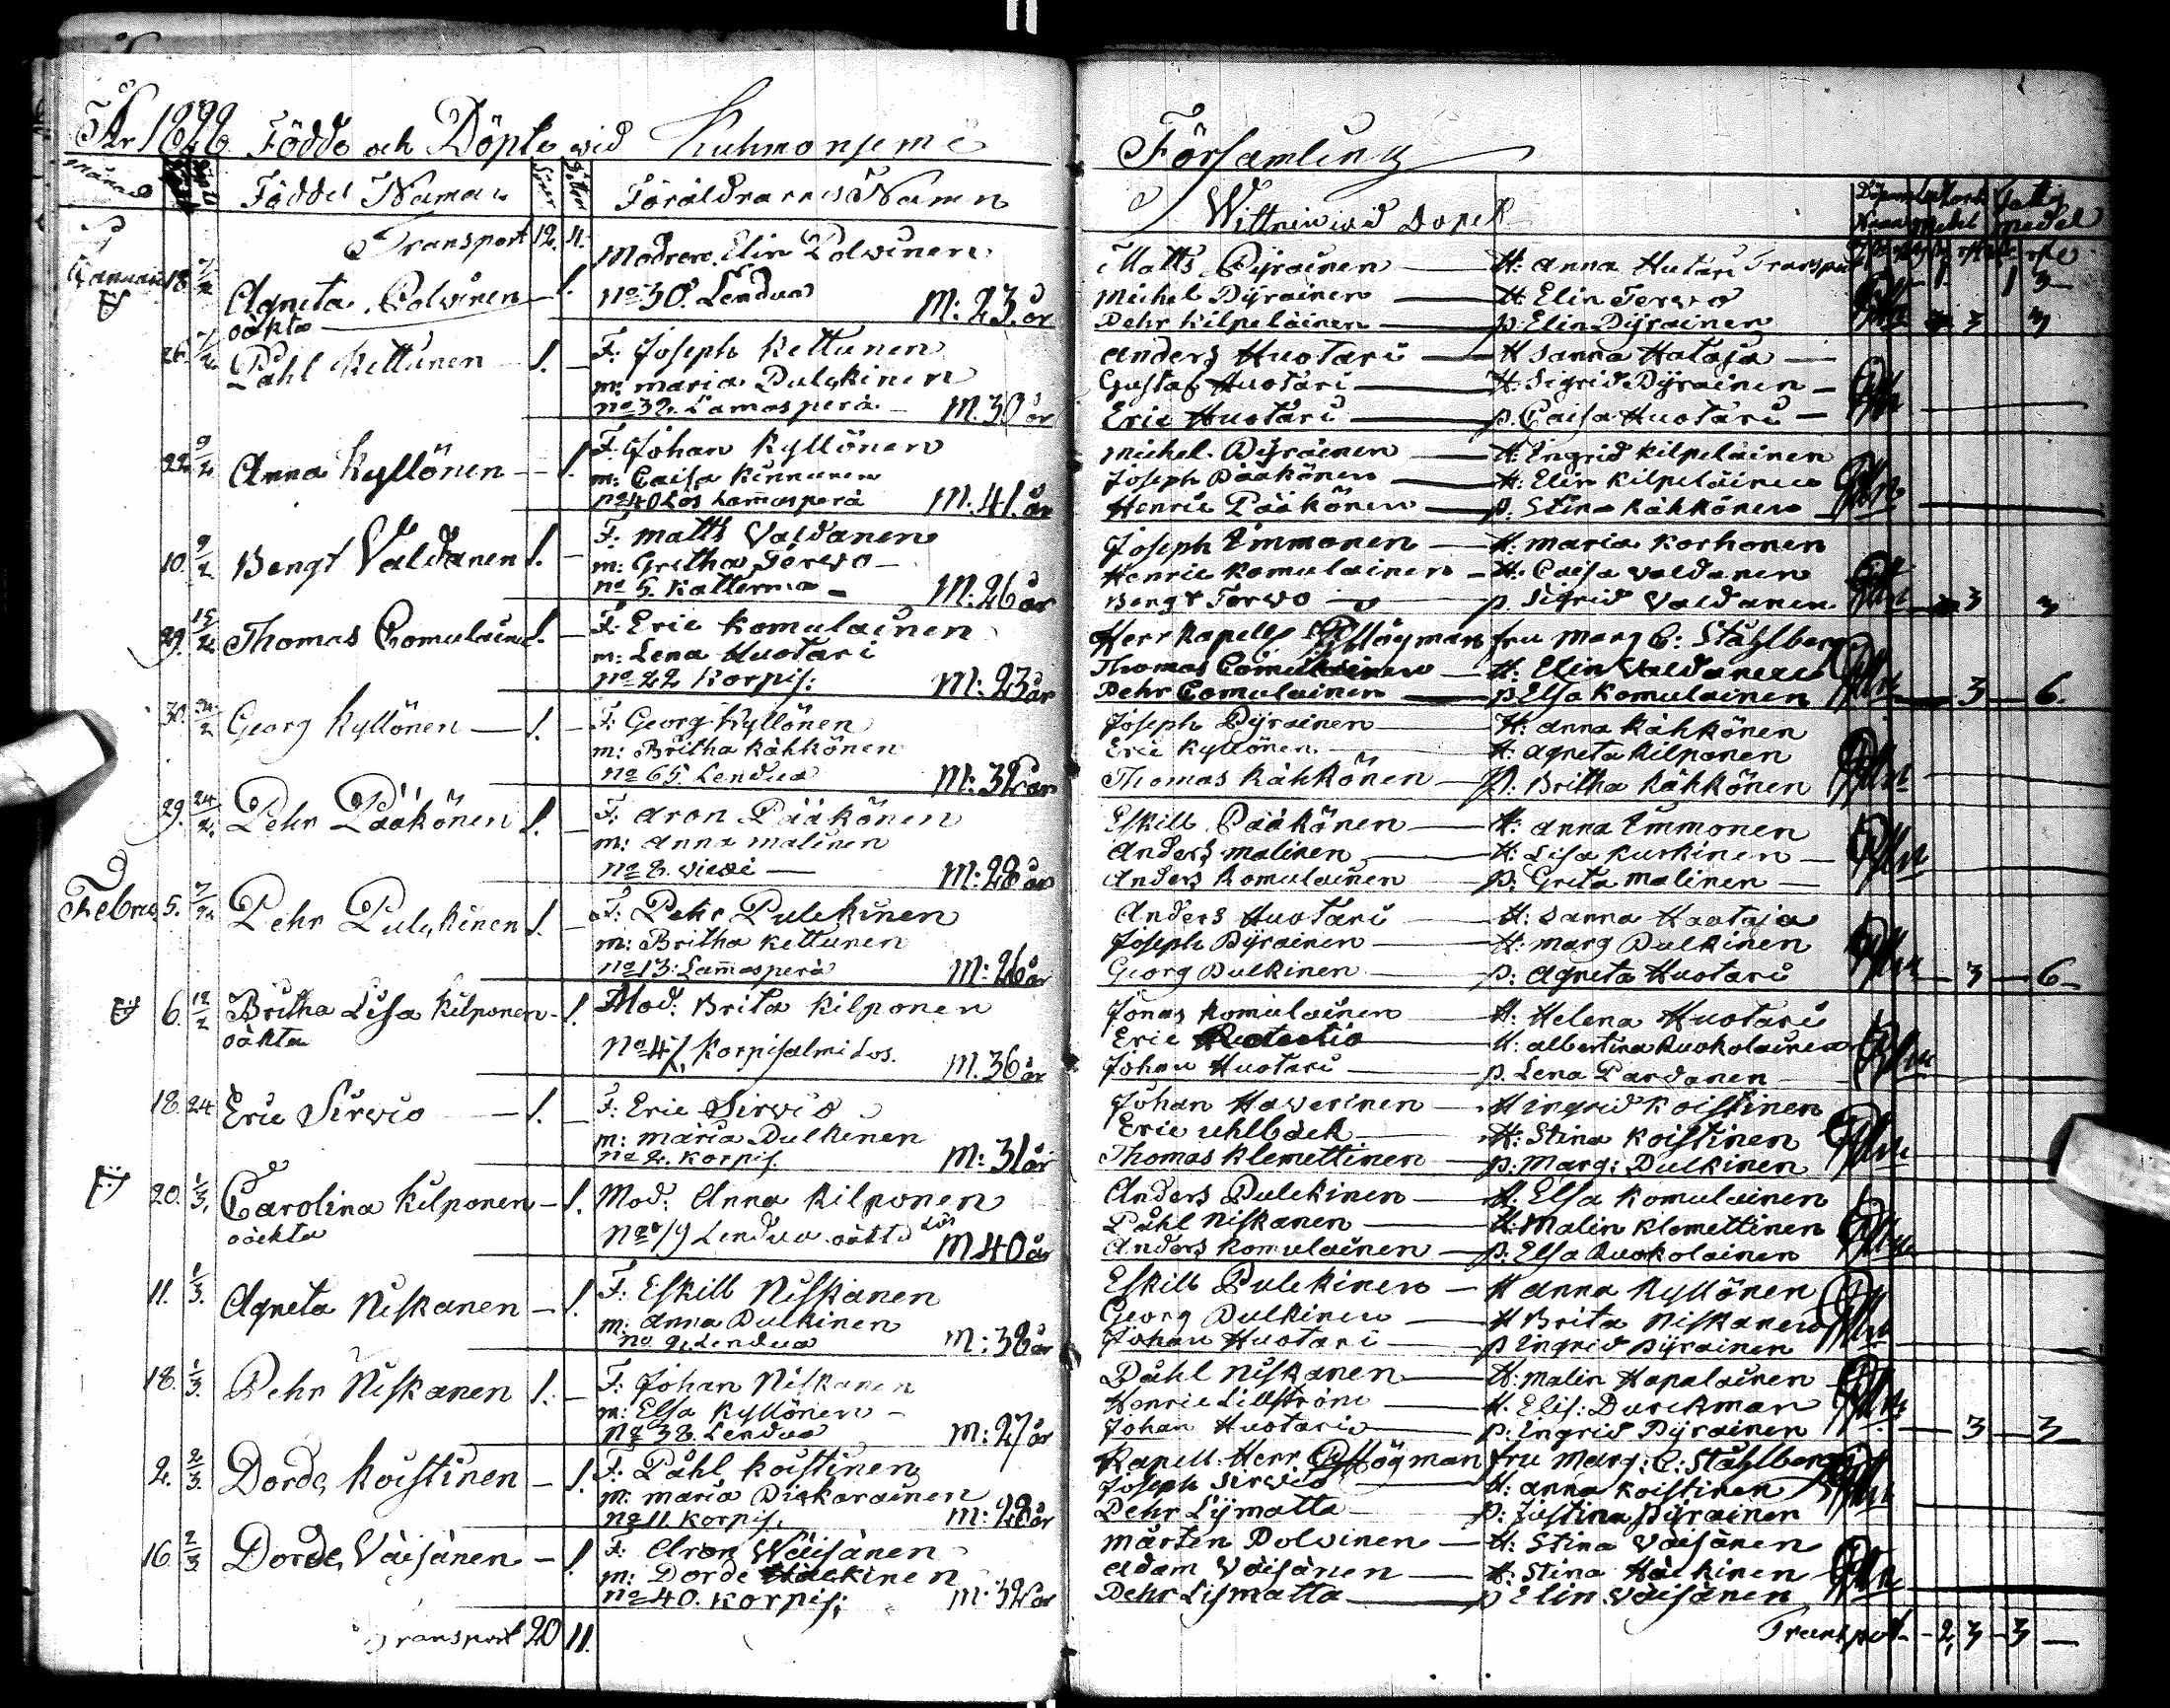 Födde och Döpte wid Kuhmoniemi
Församling
Månad
Födde Döpte
Föddes Namn
Söner
Döttrar
Föräldrarnes Namn
Wittnen wid Dopet
Transport 12. 11.
Januari 18. 7/2
Agneta Polvinen — 1.
oäkta
Modren. Elin Polvinen
No 30. Lendua M: 23. år
Matts Pyrainen — H: Anna Hutari Transport
Michel Pyrainen — H. Elin Terwo
Pehr Kilpeläinen — p: Elin Pyrainen 3 3
26. 7/2 Påhl Kettunen — 1. —
F: Joseph Kettunen
m: Maria Pulckinen
No 32. Lamasperä — M. 30 år
Anders Huotari — H Sanna Hataja —
Gustaf Huotari — H: Sigrid Pyrainen —
Eric Huotari — p. Caisa Huotari —
22. 9/2 Anna Kyllönen — 1.
F. Johan Kyllönen
m: Caisa Kinnunen
No 40 Lös Lam̄asperä M. 41. år
Michel. Pyrainen — H: Ingrid Kilpelainen
Joseph Pääkönen — H: Elin Kilpeläinen
Henric Pääkönen — p. Stina Kähkönen
10. 9/2 Bengt Valdanen 1. —
F. Matts Valdanen
m: Gretha Terwo —
no 5. Katterma — M: 26 år
Joseph Immonen — H: Maria Korhonen
Henric Komulainen — H: Caisa Valdanen
Bengt Terwo — p. Sigrid Valdanen. 3 3
29. 15/2 Thomas Comulainen 1. —
F. Eric Komulainen
m: Lena Huotari
no 22 Korpis: M: 23 år
Herr Kapell. Högman fru Marg C: Ståhlberg
Thomas Comulainen — H. Elin Valdanen
Pehr Comulainen — p Elsa Komulainen 3 — 6.
30. 24/2 Georg Kyllönen — 1. —
F: Georg Kyllönen
m: Britha Kähkönen
no 65. Lendua M: 32 år
Joseph Pyrainen — H: Anna Kähkönen
Eric Kyllönen — H: Agneta Kilponen
Thomas Kähkönen — p. Britha Kähkönen
29. 24/2. Pehr Pääkönen 1. —
F. Aron Pääkönen
m: Anna Malinen
no 8. Viexi — M: 28 år
Eskill Pääkönen — H: Anna Immonen
Anders Malinen — H: Lisa Kurkinen —
Anders Komulainen — p: Greta Malinen —
Febru 5. 7/2 Pehr Pulckinen 1. —
F: Pehr Pulckinen
m: Britha Kettunen
no 13: Lam̄asperä M: 26 år
Anders Huotari — H: Sanna Haataja
Joseph Pyrainen — H: Marg Pulkinen
Georg Pulkinen — p: Agneta Huotari 3 — 6 —
6. 12/2 Britha Lisa Kilponen — 1.
oäkta
Mod: Brita Kilponen
No 47. Korpisalmi Lös. M. 36 år
Jonas Komulainen — H: Helena Huotari
Eric — H: Albertina Ruokolainen
Johan Huotari — p. Lena Pardanen —
18. 24 Eric Sirvio — 1. —
F: Eric Sirvio
m: Maria Pulkinen
no 2. Korpis. M: 31 år
Johan Haverinen — H Ingrid Koistinen
Eric Uhlbäck — H: Stina Koistinen
Thomas Klemettinen — p: Marg: Pulkinen
20. 1/3. Carolina Kilponen — 1.
oäckta
Mod: Anna Kilponen
No 19 Lendua lös M 40 år
Anders Pulckinen — H: Elsa Komulainen
Påhl Niskanen — H: Malin Klemettinen
Anders Komulainen — p: Elsa Ruokolainen
11. 1/3. Agneta Niskanen — 1.
F. Eskill Niskanen
m: Anna Pulkinen
no 9. Lendua M: 38 år
Eskill Pulckinen — H Anna Kyllönen
Georg Pulkinen — H Brita Niskanen
Johan Huotari — p Ingrid Pyrainen
18. 1/3. Pehr Niskanen 1. —
F: Johan Niskanen
m: Elsa Kyllönen —
No 38. Lendua M: 27 år
Påhl Niskanen — H: Malin Hapalainen
Henric Lillström — H. Elis: Durckman
Johan Huotari — p: Ingrid Pyrainen 3 — 3
2. 2/3. Dorde, Koistinen — 1.
F. Påhl Koistinen
m: Maria Piskarainen
no 11. Korpis. M: 28 år
Kapell. Herr. Högman fru Marg: C: Ståhlberg
Joseph Sirvio — H: Anna Koistinen
Pehr Lymatta — p: Justina Pyrainen
16. 2/3 Dorde, Väisänen — 1.
F: Aron Wäisänen
m: Dorde Häckinen
no 40. Korpis: M: 32 år
Mårten Polvinen — H: Stina Väisänen
Adam Väisänen — H: Stina Häckinen
Pehr Lismatta — p Elin Väisänen
Transport 20 11.
Transport — 2, 3 — 3 —